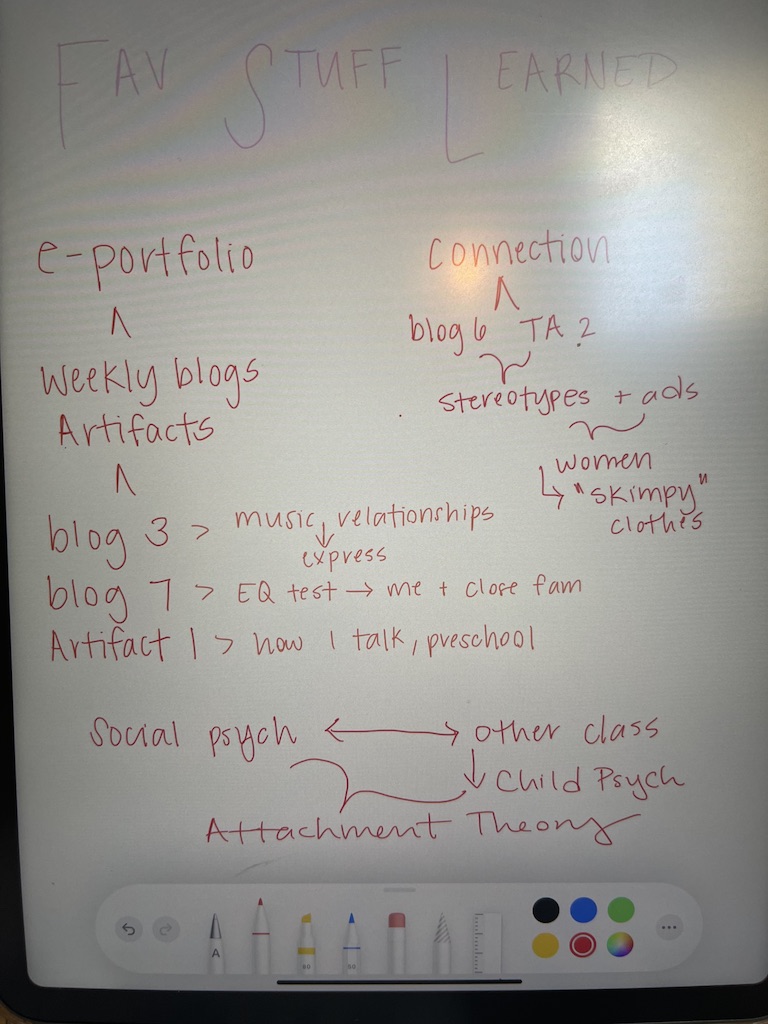 FAV STUFF LEARNED
e-portfolio
weekly blogs
Artifacts
blog 3 > music, relationships
express
blog 7 > EQ test → me + close fam
Artifact 1 > how I talk, preschool
connection
blog 6 TA 2
stereotypes + ads
women
↳ "skimpy"
clothes
social psych ↔ other class
↓ Child Psych
Attachment Theory
A
80
50